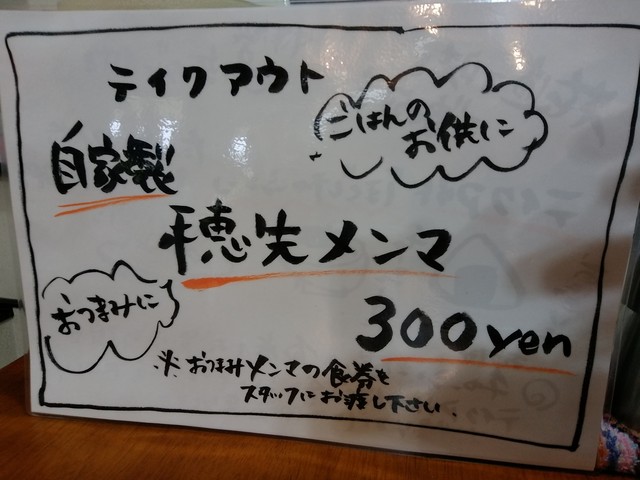 テイクアウト
ごはんの
お供に
自家製
穂先メンマ
おつまみに
300yen
※おつまみメンマの食券を
スタッフにお渡し下さい。